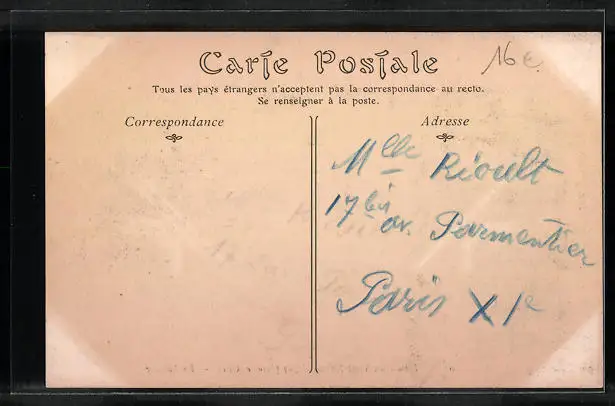 16 €
Carte Postale
Tous les pays étrangers n'acceptent pas la correspondance au recto.
Se renseigner à la poste.
Correspondance
Adresse
Mlle Rioult
17 bis av. Parmentier
Paris XIe